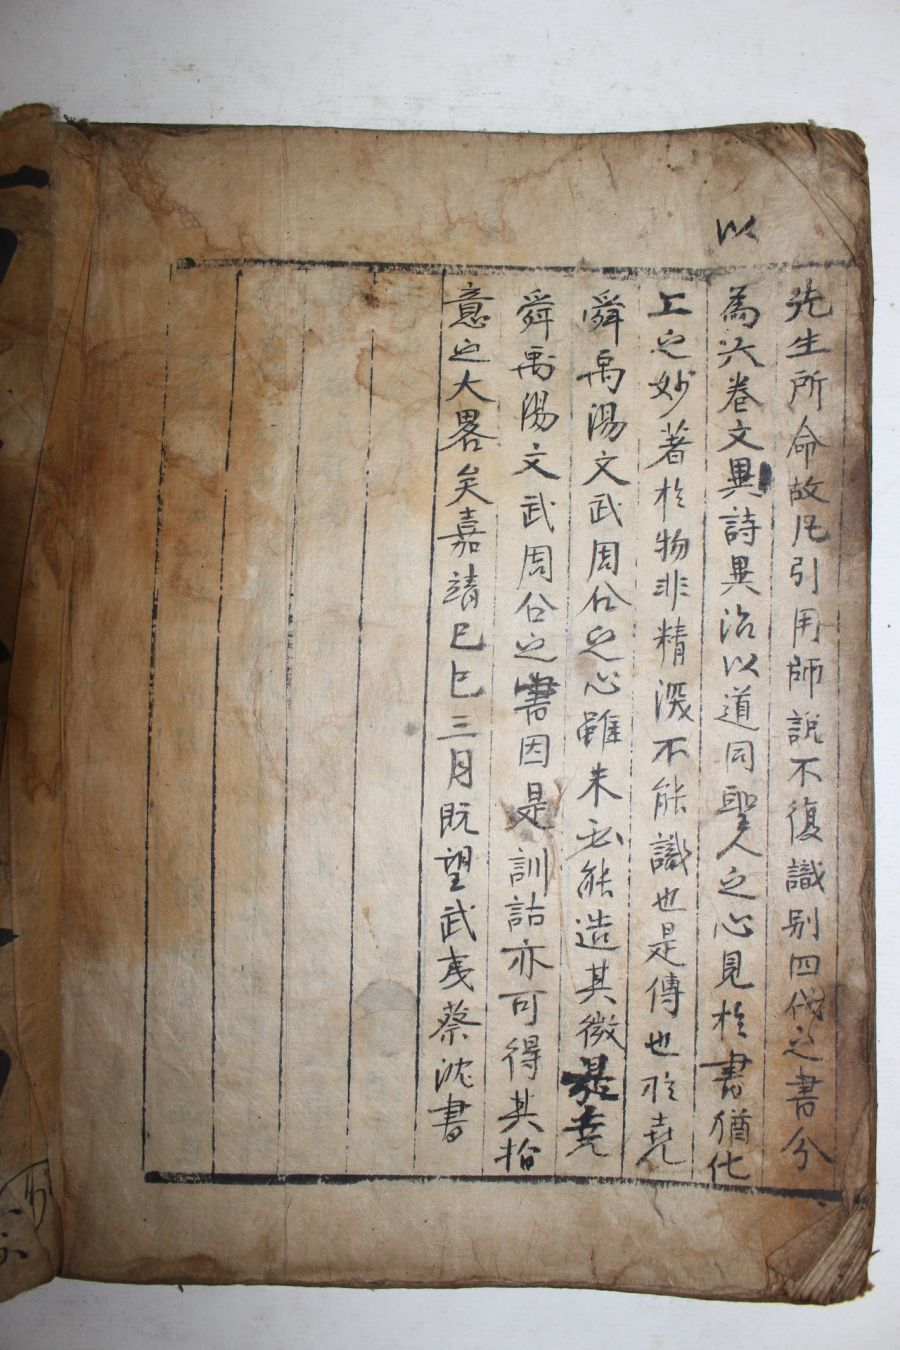 以
先生所命故凡引用師說不復識别四代之書分
為六卷文異詩異治以道同聖人之心見於書猶化
工之妙著於物非精深不能識也是傳也於堯
舜禹湯文武周公之心雖未必能造其微於堯
舜禹湯文武周公之書因是訓詁亦可得其指
意之大畧矣嘉靖己巳三月既望武夷蔡沈書